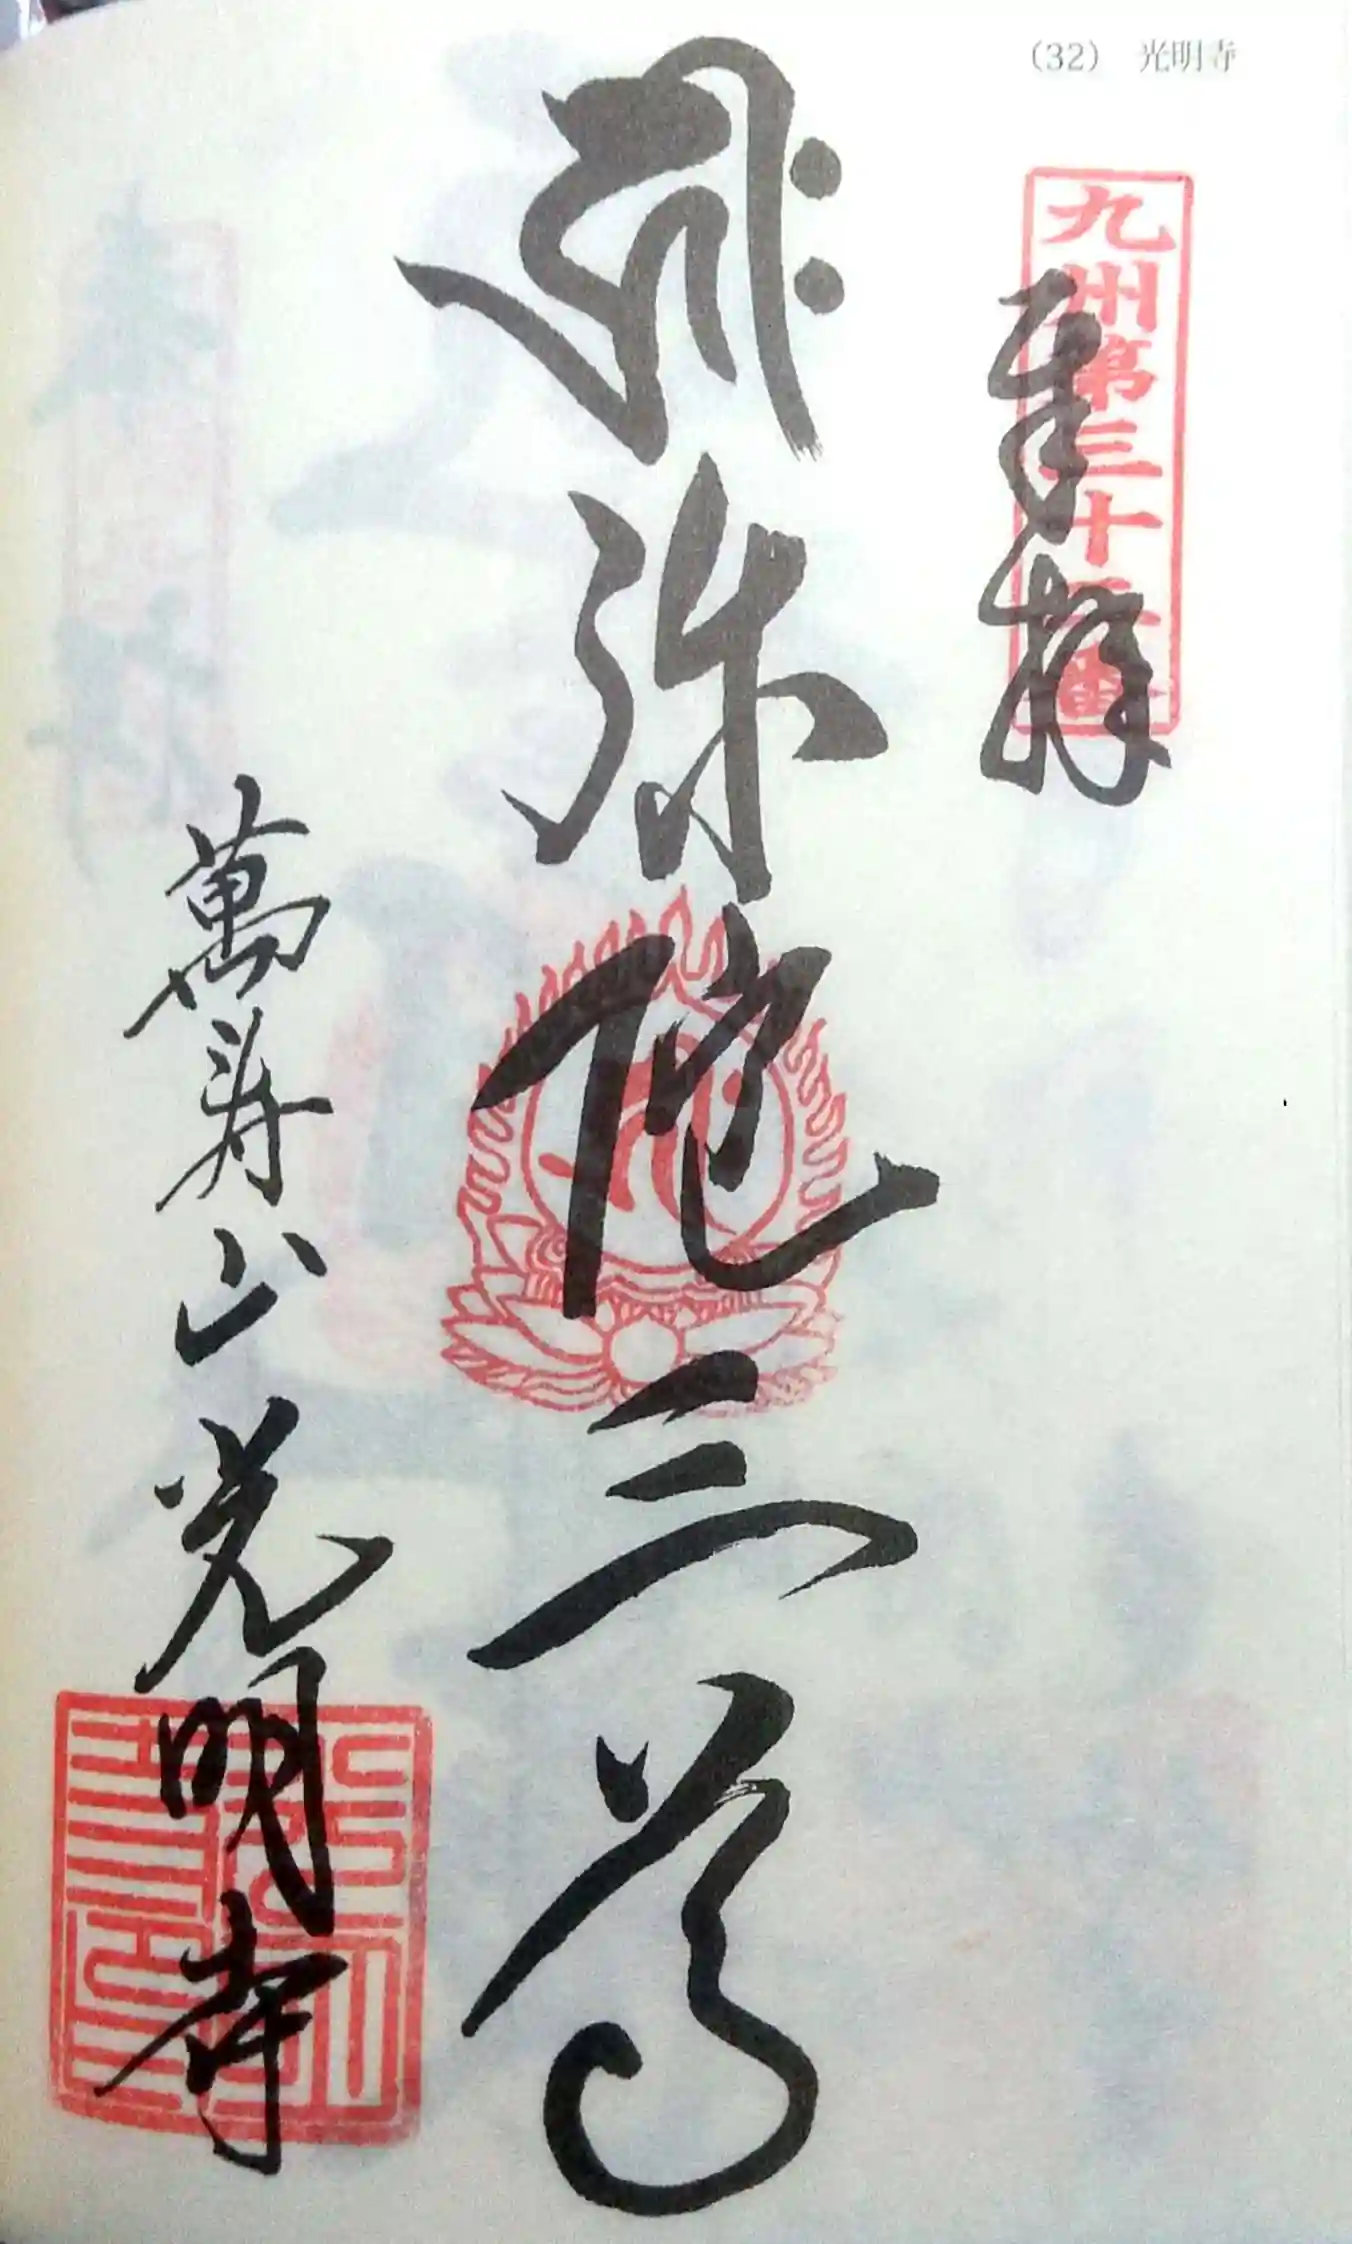 (32) 光明寺
九州第三十二番
奉拝
弥陀三尊
萬寿山 光明寺